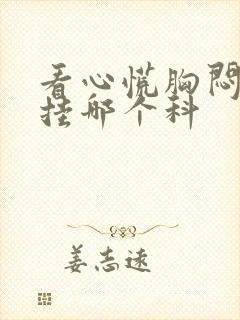 看心慌胸闷
挂哪个科
姜志远